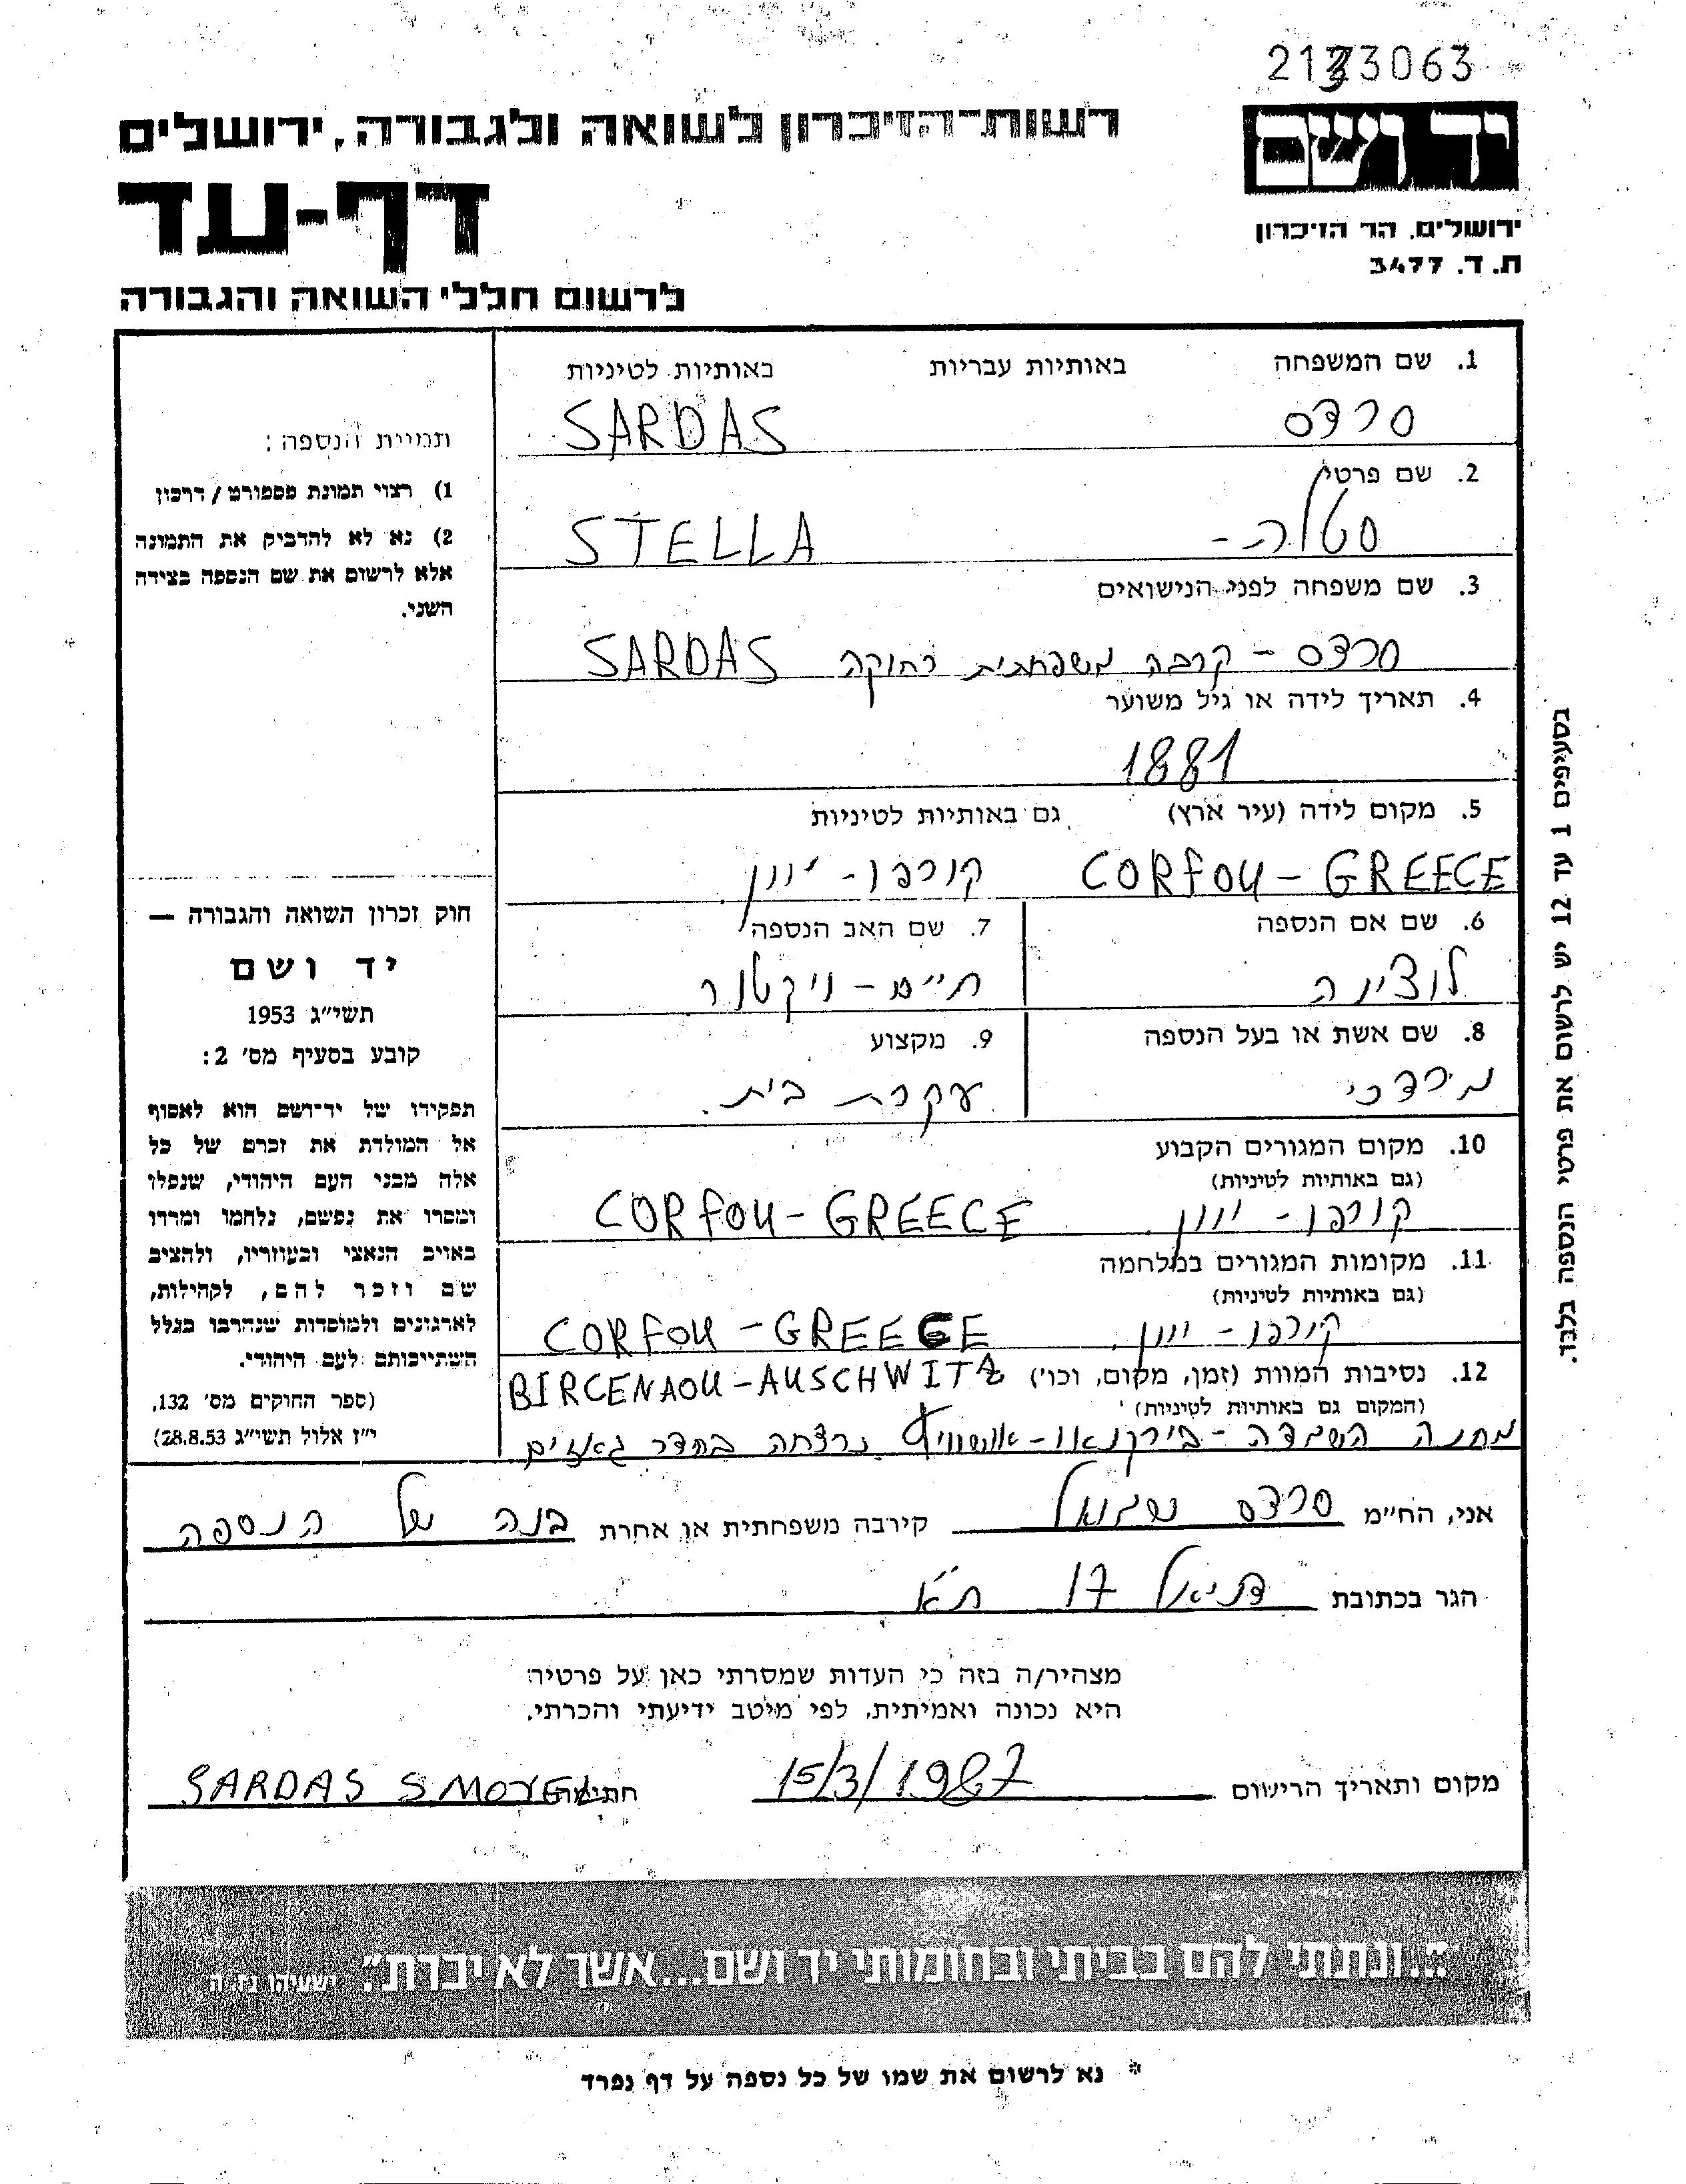 2133063
רשות־הזיכרון לשואה ולגבורה, ירושלים
יד ושם
דף-עד
ירושלים, הר הזיכרון
ת. ד. 3477
לרשום חללי השואה והגבורה
1. שם המשפחה באותיות עבריות באותיות לטיניות
סרדס SARDAS
2. שם פרטי
סטלה - STELLA
3. שם משפחה לפני הנישואים
סרדס - קרבה משפחתית רחוקה SARDAS
4. תאריך לידה או גיל משוער
1881
5. מקום לידה (עיר ארץ) גם באותיות לטיניות
CORFOU - GREECE קורפו - יוון
6. שם אם הנספה 7. שם האב הנספה
לוצינה חיים - ויקטור
8. שם אשת או בעל הנספה 9. מקצוע
מירדכי עקרת בית.
10. מקום המגורים הקבוע
(גם באותיות לטיניות)
קורפו - יוון CORFOU - GREECE
11. מקומות המגורים במלחמה
(גם באותיות לטיניות)
קורפו - יוון. CORFOU - GREECE
12. נסיבות המוות (זמן, מקום, וכו') BIRCENAOU - AUSCHWITZ
(המקום גם באותיות לטיניות)
מחנה השמדה - בירקנאו - אושוויץ נרצחה בחדר גאזים
תמונת הנספה:
1) רצוי תמונת פספורט / דרכון
2) נא לא להדביק את התמונה
אלא לרשום את שם הנספה בצידה
השני.
חוק זכרון השואה והגבורה —
יד ושם
תשי"ג 1953
קובע בסעיף מס' 2:
תפקידו של יד־ושם הוא לאסוף
אל המולדת את זכרם של כל
אלה מבני העם היהודי, שנפלו
ומסרו את נפשם, נלחמו ומרדו
באויב הנאצי ובעוזריו, ולהציב
שם וזכר להם, לקהילות,
לארגונים ולמוסדות שנהרבו בגלל
השתייכותם לעם היהודי.
(ספר החוקים מס' 132,
י"ז אלול תשי"ג 28.8.53)
בסעיפים 1 עד 12 יש לרשום את פרטי הנספה בלבד.
אני, הח"מ סרדס שמואל קירבה משפחתית או אחרת בנה של הנספה
הגר בכתובת דניאל 17 ת"א
מצהיר/ה בזה כי העדות שמסרתי כאן על פרטיה
היא נכונה ואמיתית, לפי מיטב ידיעתי והכרתי.
מקום ותאריך הרישום 15/3/1987 חתימה SARDAS SMOYEL
"...ונתתי להם בביתי ובחומותי יד ושם...אשר לא יכרת". ישעיהו נו ה
* נא לרשום את שמו של כל נספה על דף נפרד